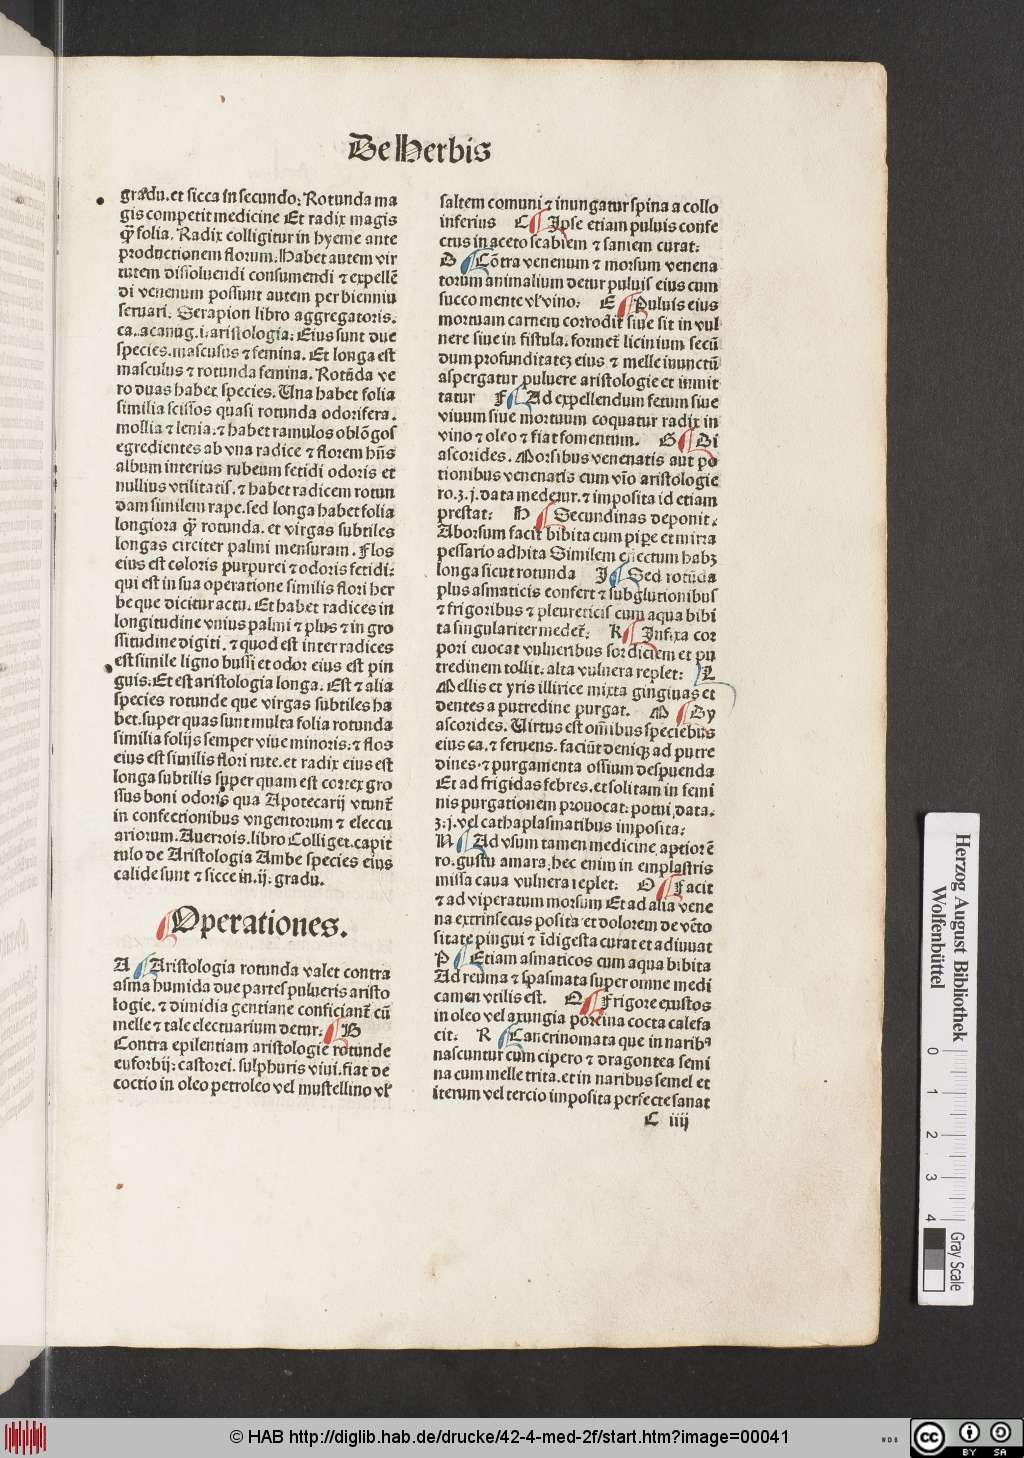 De Herbis
gradu.et sicca in secundo: Rotunda ma
gis competit medicine Et radix magis
qȝ folia. Radix colligitur in hyeme ante
productionem florum: Habet autem vir
tutem dissoluendi consumendi ⁊ expellē
di venenum possunt autem per bienniu
seruari. Serapion libro aggregatoris.
ca. acanug.i.aristologia: Eius sunt due
species.masculus ⁊ femina. Et longa est
masculus ⁊ rotunda femina. Rotūda ve
ro duas habet species. Una habet folia
similia scissos quasi rotunda odorifera.
mollia ⁊ lenia:⁊ habet ramulos oblōgos
egredientes ab vna radice ⁊ florem hn̄s
album interius rubeum fetidi odoris et
nullius vtilitatis.⁊ habet radicem rotun
dam similem rape.sed longa habet folia
longiora qȝ rotunda.et virgas subtiles
longas circiter palmi mensuram. Flos
eius est coloris purpurei ⁊ odoris fetidi:
qui est in sua operatione similis flori her
be que dicitur actu. Et habet radices in
longitudine vnius palmi ⁊ plus ⁊ in gro
ssitudine digiti.⁊ quod est inter radices
est simile ligno bussi et odor eius est pin
guis: Et est aristologia longa. Est ⁊ alia
species rotunde que virgas subtiles ha
bet.super quas sunt multa folia rotunda
similia folijs semper viue minoris:⁊ flos
eius est similis flori rute.et radix eius est
longa subtilis super quam est cortex gro
ssus boni odoris qua Apotecarij vtunt̄
in confectionibus vngentorum ⁊ eleccu
ariorum. Auerrois.libro Colliget.capit
tulo de Aristologia Ambe species eius
calide sunt ⁊ sicce in.ij: gradu.
Operationes.
A Aristologia rotunda valet contra
asma humida due partes pulueris aristo
logie. ⁊ dimidia gentiane conficiant̄ cū
melle ⁊ tale electuarium detur: B
Contra epilentiam aristologie rotunde
euforbij: castorei. sulphuris viui.fiat de
coctio in oleo petroleo vel mustellino vl̓
saltem comuni ⁊ inungatur spina a collo
inferius C Ipse etiam puluis confe
ctus in aceto scabiem ⁊ saniem curat:
D Cōtra venenum ⁊ morsum venena
torum animalium detur puluis eius cum
succo mente vl̓ vino: E Puluis eius
mortuam carnem corrodit siue sit in vul
nere siue in fistula. formet̄ licinium secū
dum profunditatez eius ⁊ melle inunctū
aspergatur puluere aristologie et inmit
tatur F Ad expellendum fetum siue
viuum siue mortuum coquatur radix in
vino ⁊ oleo ⁊ fiat fomentum. G Di
ascorides. Morsibus venenatis aut po
tionibus venenatis cum vīo aristologie
ro.ʒ.j.data medetur.⁊ imposita id etiam
prestat: H Secundinas deponit.
Aborsum facit bibita cum pipe et mirra
pessario adhita Similem effectum habȝ
longa sicut rotunda I Sed rotūda
plus asmaticis confert ⁊ subglutionibus
⁊ frigoribus ⁊ pleureticis cum aqua bibi
ta singulariter medet̄: K Infixa cor
pori euocat vulneribus sordiciem et pu
tredinem tollit: alta vulnera replet: L
Mellis et yris illirice mixta gingiuas et
dentes a putredine purgat. M Dy
ascorides. Uirtus est om̄ibus speciebus
eius ca.⁊ feruens. faciūt deniqȝ ad putre
dines.⁊ purgamenta ossium despuenda
Et ad frigidas febres.et solitam in femi
nis purgationem prouocat: potui data.
ʒ:j.vel cathaplasmatibus imposita:
N Ad vsum tamen medicine aptior ē
ro.gustu amara.hec enim in emplastris
missa caua vulnera replet: O Facit
⁊ ad viperatum morsum Et ad alia vene
na extrinsecus posita et dolorem de vēto
sitate pingui ⁊ īdigesta curat et adiuuat
P Etiam asmaticos cum aqua bibita
Ad reuma ⁊ spasmata super omne medi
camen vtilis est. Q Frigore exustos
in oleo vel axungia porcina cocta calefa
cit: R Cancrinomata que in naribꝰ
nascuntur cum cipero ⁊ dragontea semi
na cum melle trita.et in naribus semel et
iterum vel tercio imposita perfecte sanat
C iiij
Herzog August Bibliothek
Wolfenbüttel
0 1 2 3 4
Gray Scale
© HAB http://diglib.hab.de/drucke/42-4-med-2f/start.htm?image=00041
WDB
cc BY SA